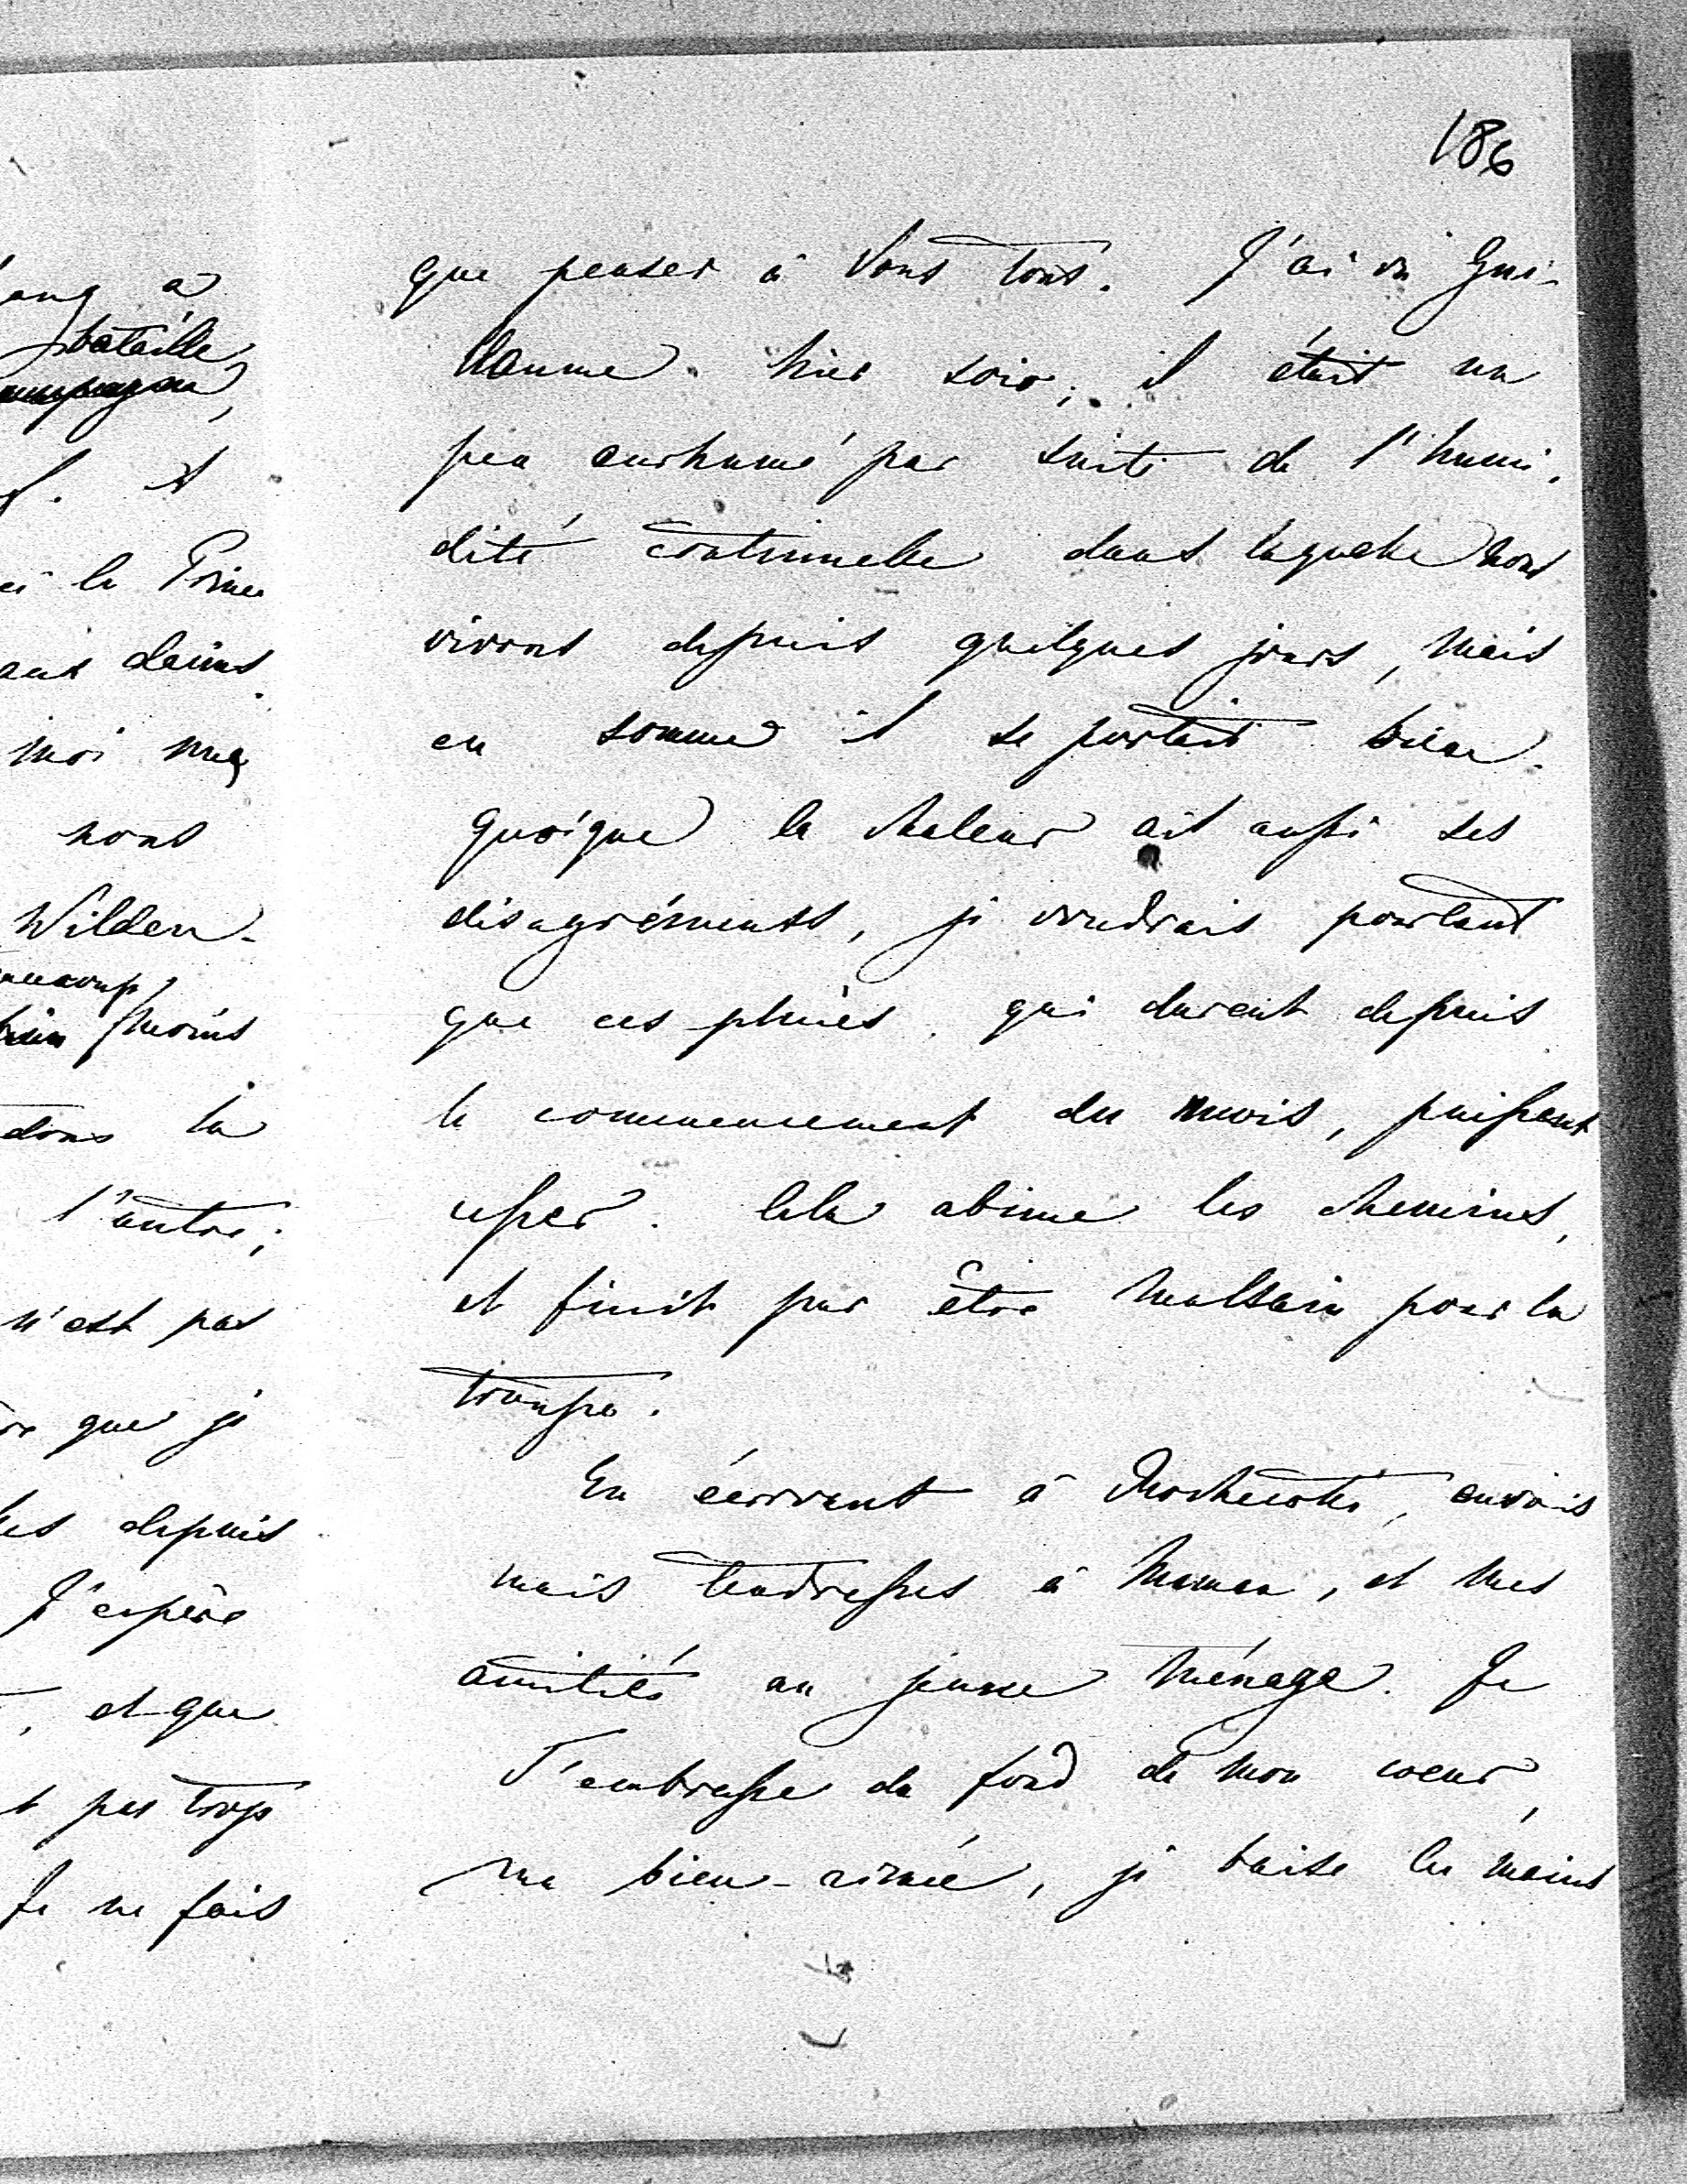 186
que penser à Vous tous. J'ai vu Gui-
llaume hier soir; il était un
peu enrhumé par suite de l'humi-
dité continuelle dans laquelle nous
vivons depuis quelques jours, mais
en somme il se portait bien.
quoique la chaleur ait aussi ses
désagréments, je voudrais pourtant
que ces pluies qui durent depuis
le commencement du mois, puissent
cesser. Cela abime les chemins,
et finit par être malsain pour la
troupe.
En écrivant à envois
mais tendresses à Maman, et mes
amitiés au jeune ménage. Je
T'embrasse du fond de mon coeur,
ma bien-aimée, je baise les mains
a
bataille
. A
le Prince
daims
moi
nous
Wilden-
beaucoup
bien moins
dans la
l'autre;
n'est pas
que je
depuis
J'espère
, et que
pas trop
Je ne fais